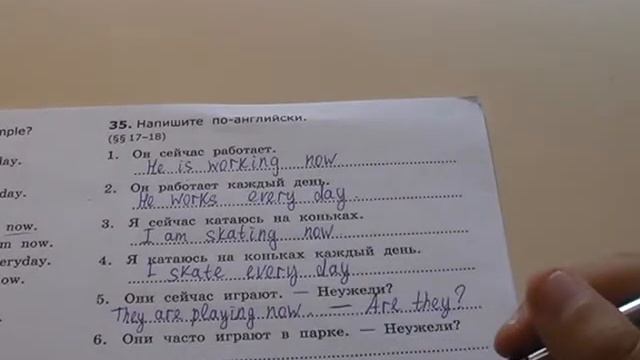 mple?
lay.
day.
now.
m now.
everyday.
ow.
35. Напишите по-английски.
(§§ 17–18)
1. Он сейчас работает.
He is working now
2. Он работает каждый день.
He works every day
3. Я сейчас катаюсь на коньках.
I am skating now
4. Я катаюсь на коньках каждый день.
I skate every day
5. Они сейчас играют. — Неужели?
They are playing now — Are they?
6. Они часто играют в парке. — Неужели?